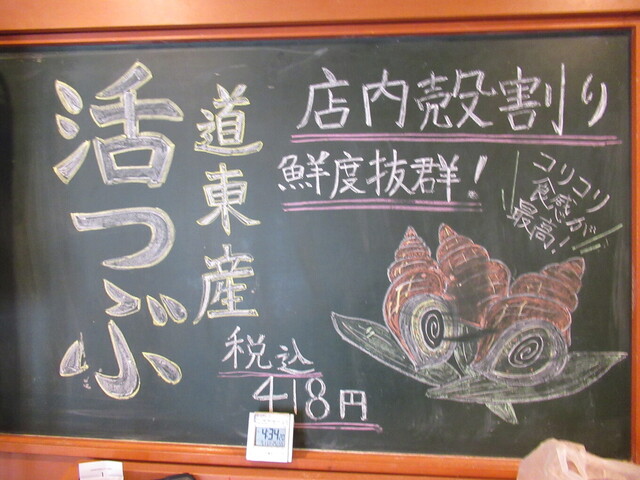 店内殻割り
鮮度抜群！
コリコリ
食感が
最高！
道東産
活つぶ
税込
418円
4:34